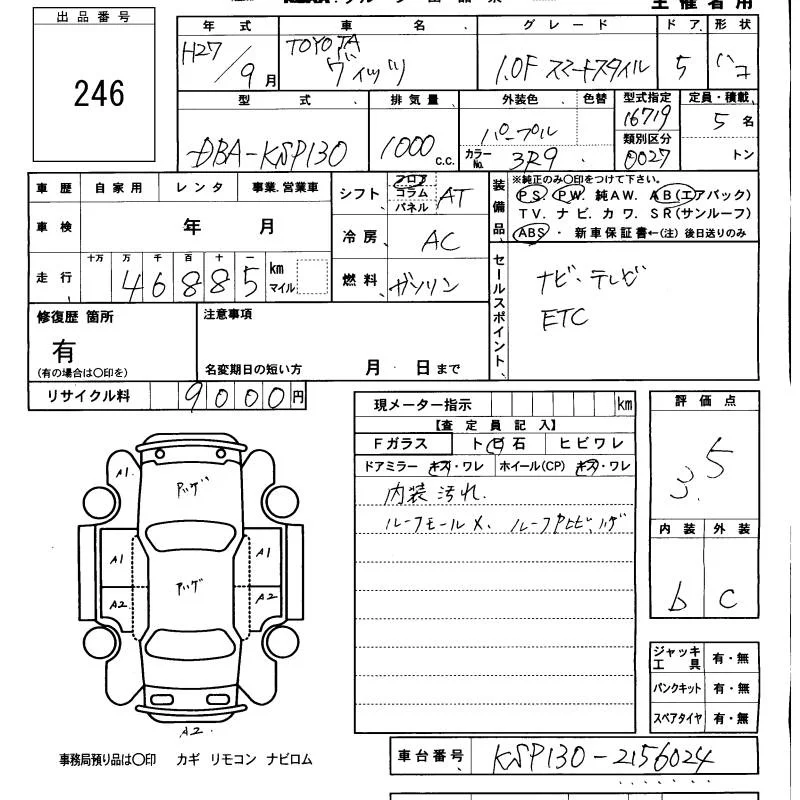 主催者用
出品番号
246
年式 車名 グレード ドア 形状
H27/9月 TOYOTA ヴィッツ 1.0F スマートスタイル 5 ハコ
型式 排気量 外装色 色替 型式指定 定員・積載
DBA-KSP130 1000 c.c. パープル 16719 5 名
カラーNo. 3R9 類別区分 0027 トン
車歴 自家用 レンタ 事業.営業車
シフト フロア コラム パネル AT
装備品 ※純正のみ○印をつけて下さい。
PS. PW. 純AW. AB(エアバック)
TV. ナビ. カワ. SR(サンルーフ)
ABS・新車保証書←(注)後日送りのみ
車検 年 月
冷房 AC
走行 十万 万 千 百 十 一
46885 km マイル
燃料 ガソリン
セールスポイント、
ナビ・テレビ
ETC
修復歴 箇所
有
(有の場合は○印を)
注意事項
名変期日の短い方 月 日まで
リサイクル料 9000円
現メーター指示 km
【査定員記入】
Fガラス ト日石 ヒビワレ
ドアミラー キズ・ワレ ホイール(CP) キズ・ワレ
内装汚れ.
ルーフモール X、
評価点
3.5
内装 外装
b C
A1
A1 A1
A2 A2
A2.
ジャッキ工具 有・無
パンクキット 有・無
スペアタイヤ 有・無
事務局預り品は○印 カギ リモコン ナビロム
車台番号 KSP130-2156024